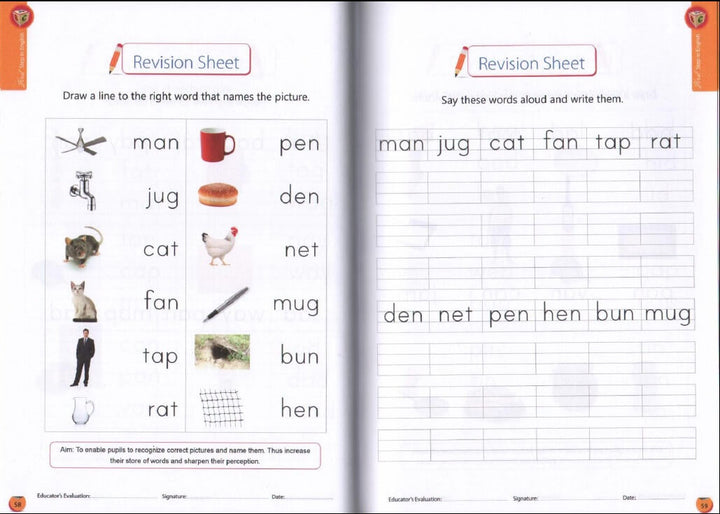 First Step to English
Revision Sheet
Draw a line to the right word that names the picture.
man pen
jug den
cat net
fan mug
tap bun
rat hen
Aim: To enable pupils to recognize correct pictures and name them. Thus increase
their store of words and sharpen their perception.
Educator's Evaluation: Signature: Date:
58
Step to English
Revision Sheet
Say these words aloud and write them.
man jug cat fan tap rat
den net pen hen bun mug
Educator's Evaluation: Signature: Date:
59